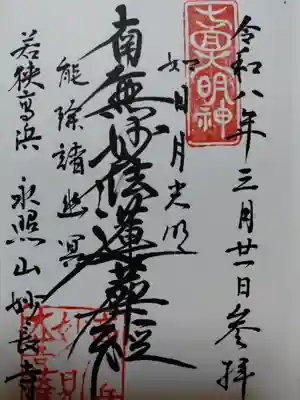 令和八年三月廿一日参拝
七面大明神
如日月光明
南無妙法蓮華経
能除諸幽冥
若狭高浜 永照山妙長寺